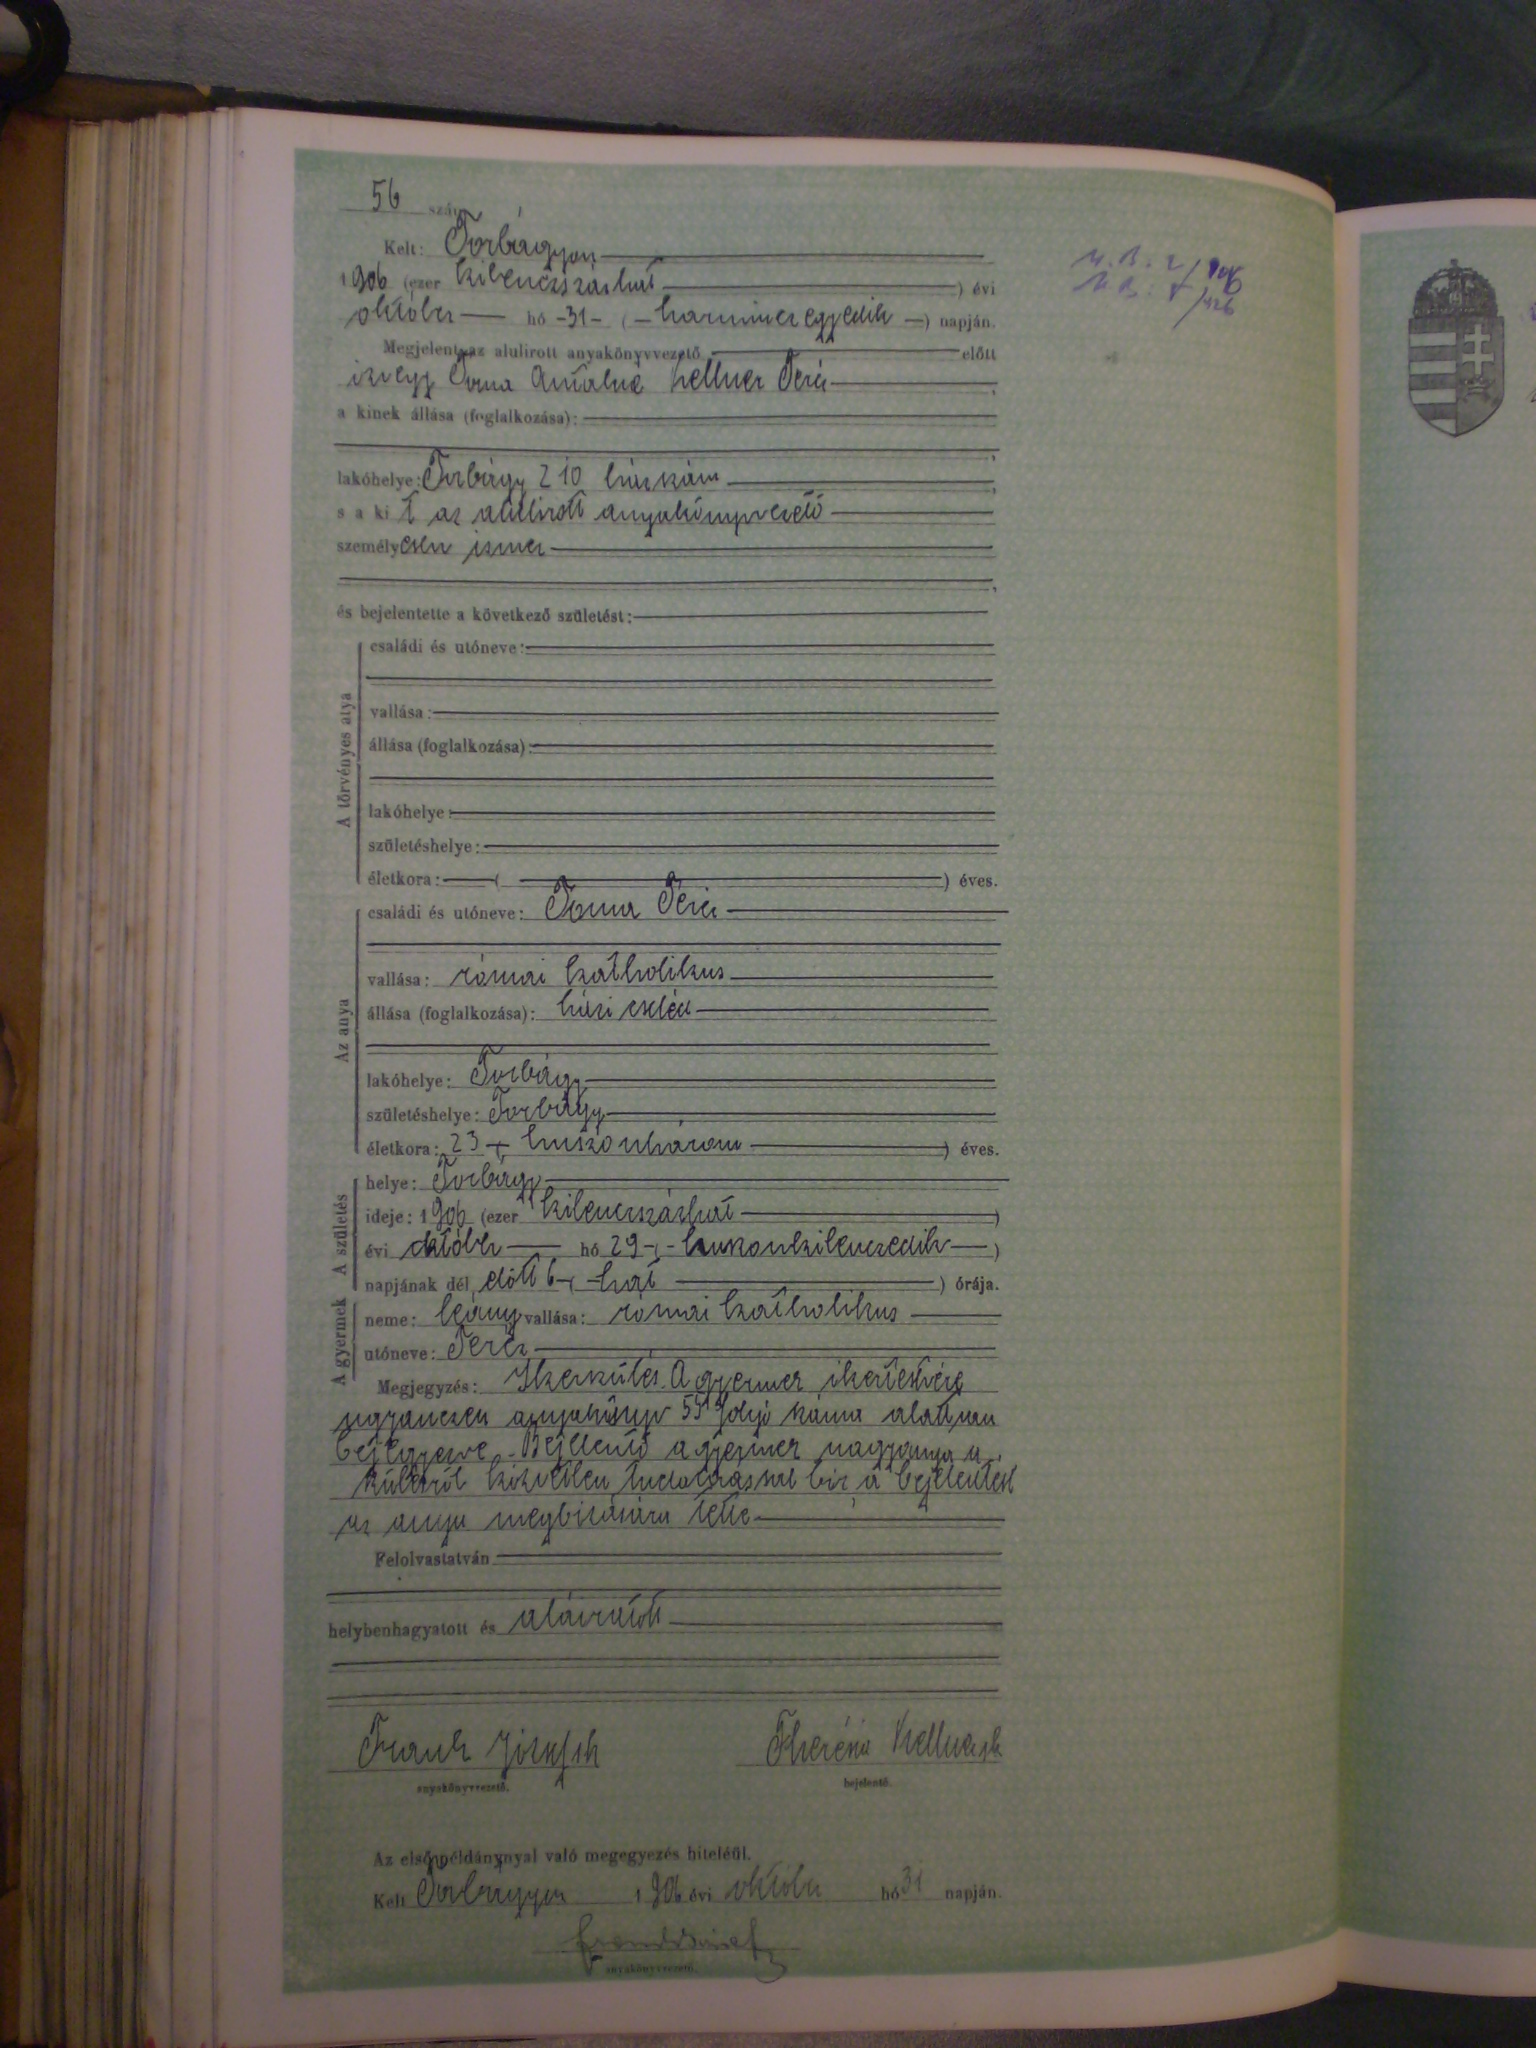 56 szám
Kelt: Torbágyon
1906 (ezer kilenczszázhat ) évi
október hó -31- (-harminczegyedik-) napján.
Megjelent az alulirott anyakönyvvezető előtt
özvegy Toma Antalné Kellner Teréz
a kinek állása (foglalkozása):
lakóhelye: Torbágy 210 házszám
s a kit az alulirott anyakönyvvezető
személyesen ismer
és bejelentette a következő születést:
A törvényes atya
családi és utóneve:
vallása:
állása (foglalkozása):
lakóhelye:
születéshelye:
életkora: ( ) éves.
Az anya
családi és utóneve: Toma Teréz
vallása: római katholikus
állása (foglalkozása): házi cseléd
lakóhelye: Torbágy
születéshelye: Torbágy
életkora: 23 ( huszonhárom ) éves.
A születés
helye: Torbágy
ideje: 1906 (ezer kilenczszázhat )
évi október hó 29-(-huszonkilenczedik )
napjának dél előtt 6-(-hat ) órája.
A gyermek
neme: leány vallása: római katholikus
utóneve: Teréz
Megjegyzés: Ikerszülés. A gyermek ikertestvére
ugyanezen anyakönyv 55 folyó száma alatt van
bejegyezve. Bejelentő a gyermek nagyanyja a
szülésről közvetlen tudomással bir a bejelentést
az anya megbizására tette
Felolvastatván
helybenhagyatott és aláiratott
Frank József Theréia Kellner
anyakönyvvezető. bejelentő.
Az első példánynyal való megegyezés hiteléül.
Kelt Torbágyon 1906 évi október hó 31 napján.
Frank József
anyakönyvvezető.